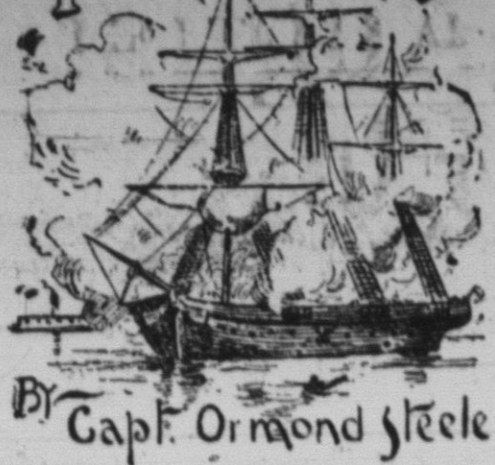 BY Capt. Ormond Steele